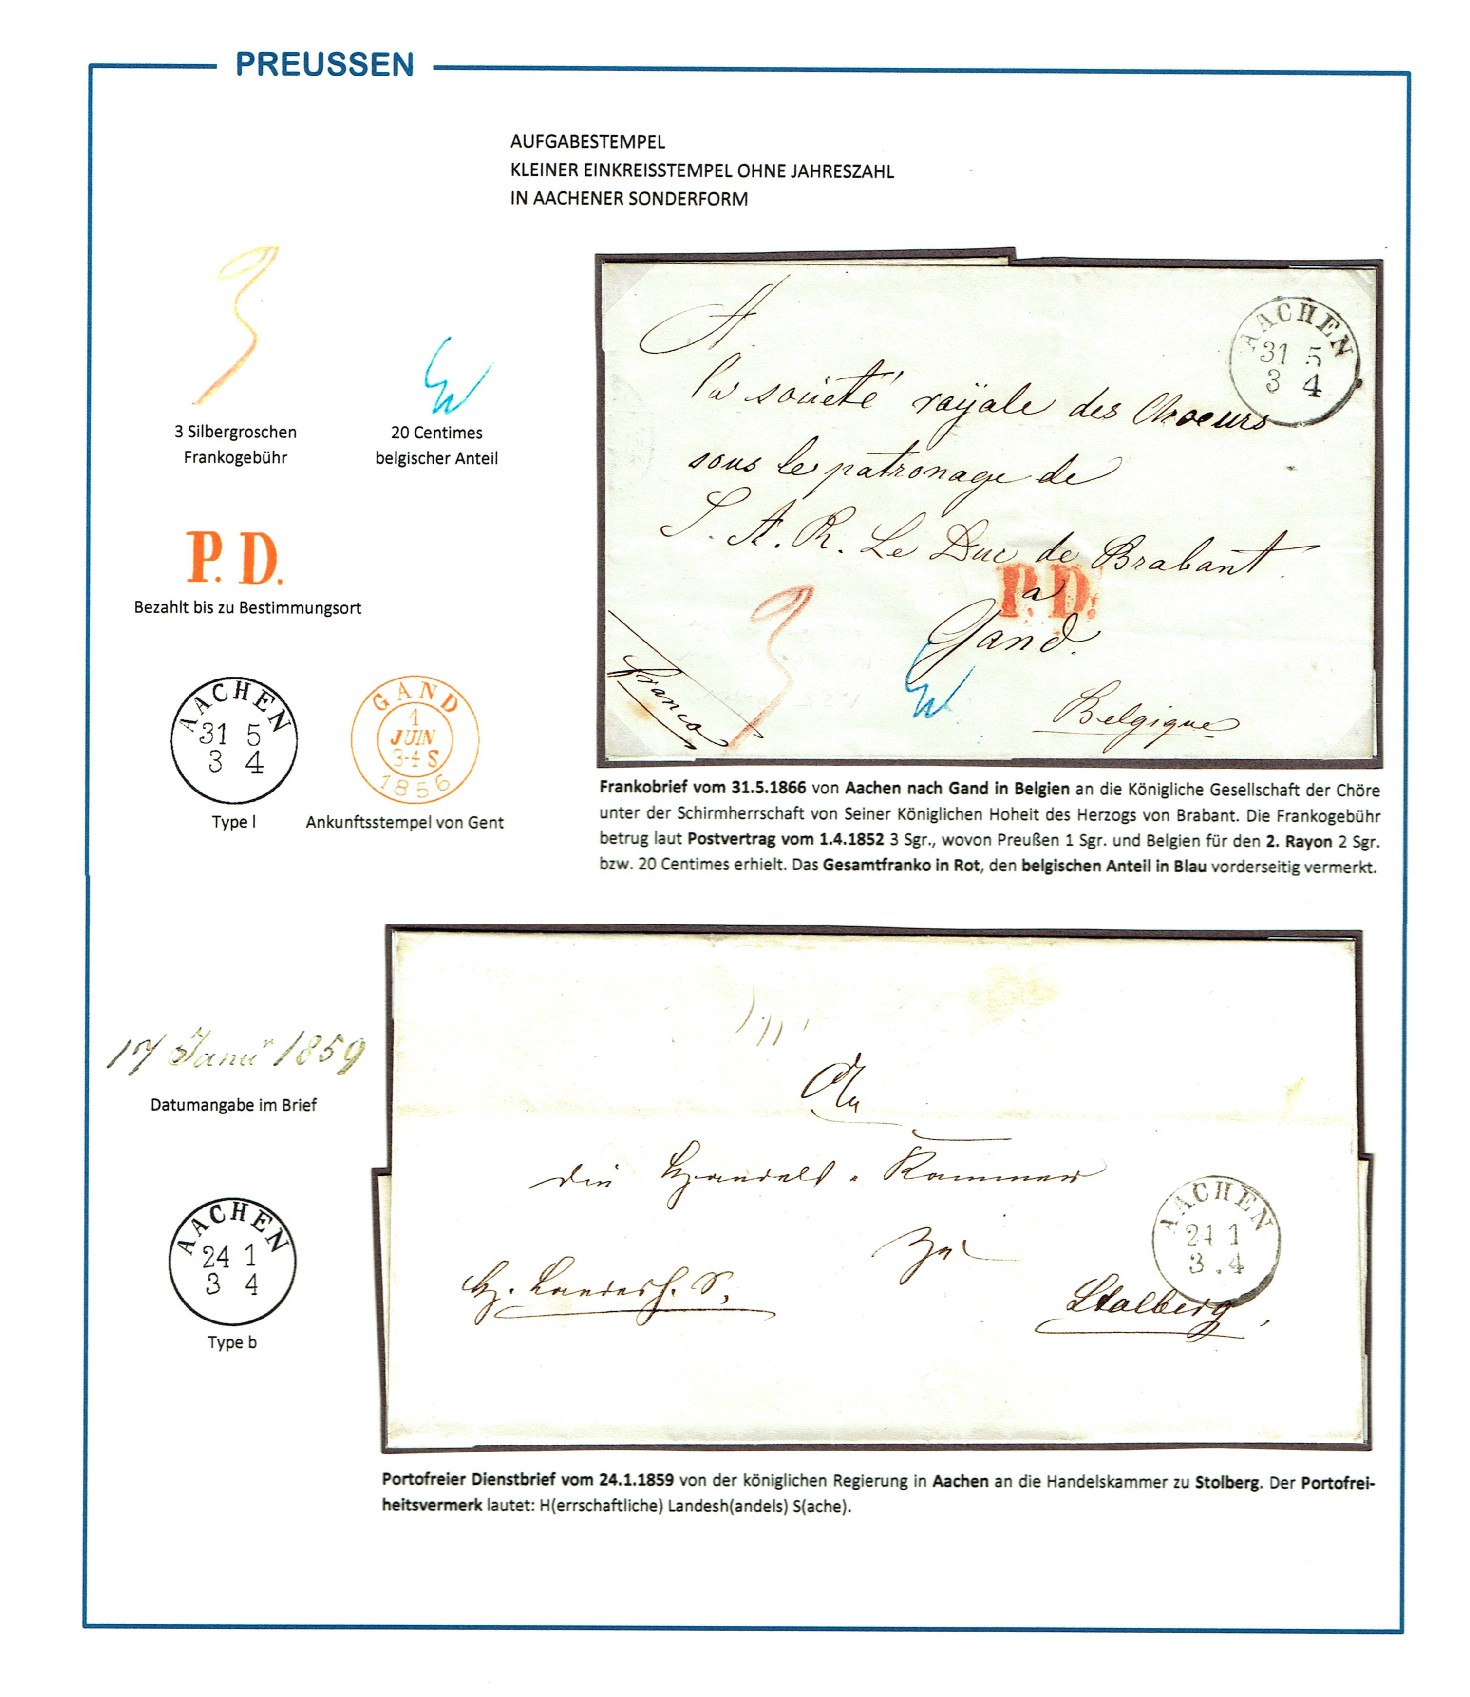 PREUSSEN
AUFGABESTEMPEL
KLEINER EINKREISSTEMPEL OHNE JAHRESZAHL
IN AACHENER SONDERFORM
3
3 Silbergroschen
Frankogebühr
20 Centimes
belgischer Anteil
P. D.
Bezahlt bis zu Bestimmungsort
AACHEN
31 5
3 4
Type I
GAND
1
JUIN
3-4 S
1856
Ankunftsstempel von Gent
A
la société royale des Choeurs
sous le patronage de
S. A. R. Le Duc de Brabant
a
Gand.
Belgique
franco
3
P. D.
AACHEN
31 5
3 4
Frankobrief vom 31.5.1866 von Aachen nach Gand in Belgien an die Königliche Gesellschaft der Chöre
unter der Schirmherrschaft von Seiner Königlichen Hoheit des Herzogs von Brabant. Die Frankogebühr
betrug laut Postvertrag vom 1.4.1852 3 Sgr., wovon Preußen 1 Sgr. und Belgien für den 2. Rayon 2 Sgr.
bzw. 20 Centimes erhielt. Das Gesamtfranko in Rot, den belgischen Anteil in Blau vorderseitig vermerkt.
17 Janur 1859
Datumangabe im Brief
AACHEN
24 1
3 4
Type b
An
die Handels-Kammer
zu
H. Landesh. S.
Stolberg,
AACHEN
24 1
3 . 4
Portofreier Dienstbrief vom 24.1.1859 von der königlichen Regierung in Aachen an die Handelskammer zu Stolberg. Der Portofrei-
heitsvermerk lautet: H(errschaftliche) Landesh(andels) S(ache).